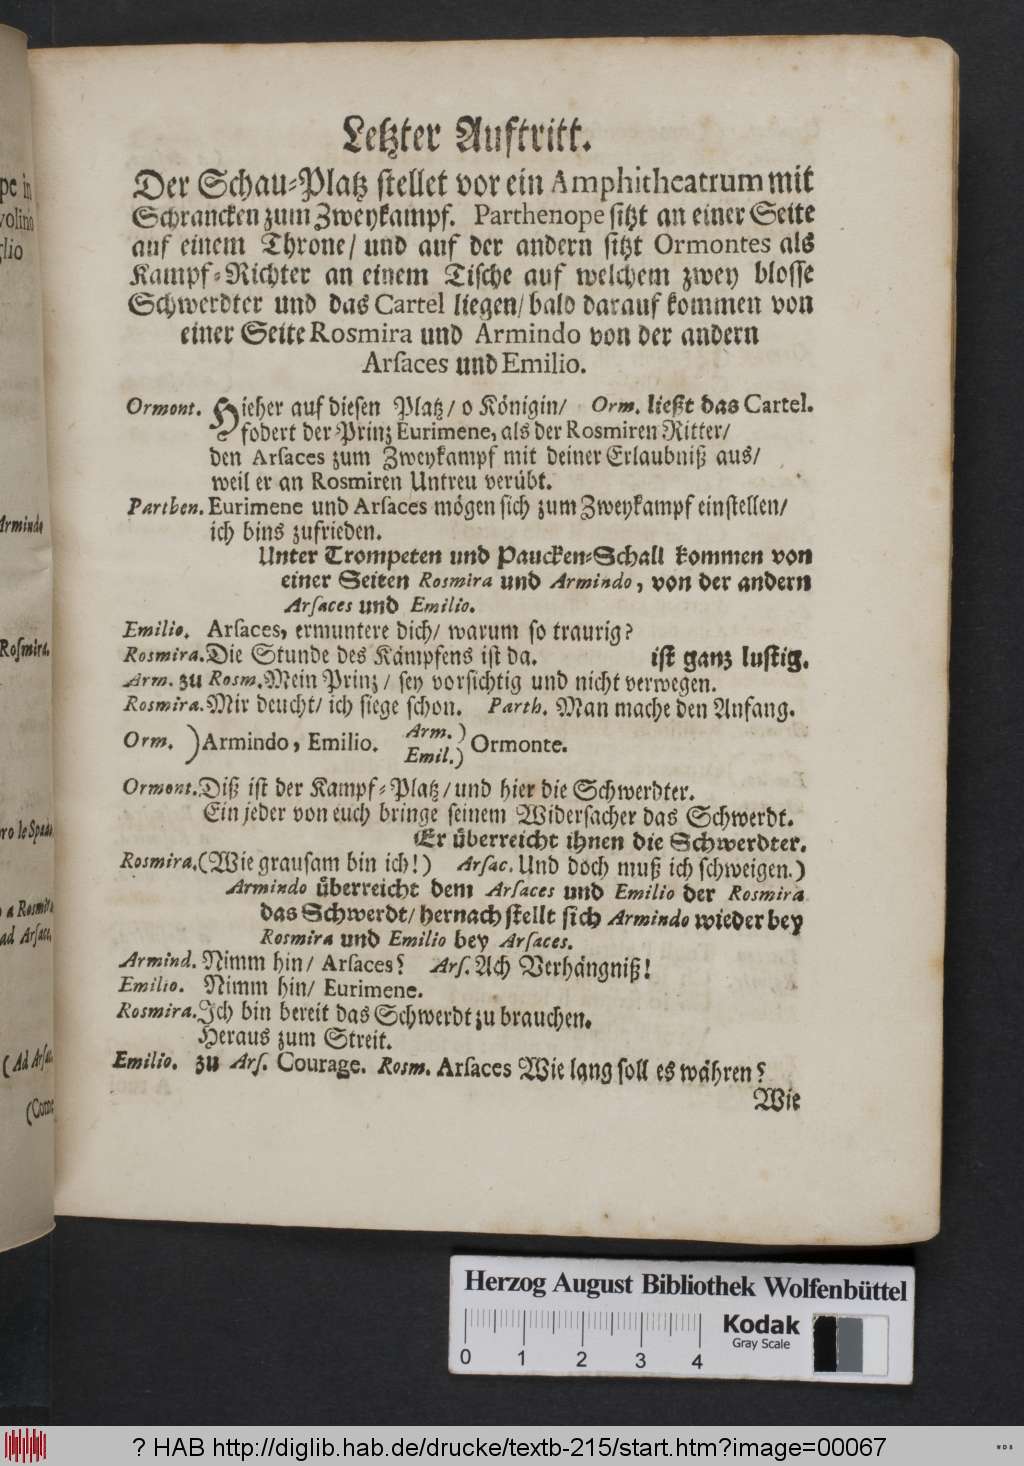 Letzter Auftritt.
Der Schau-Platz stellet vor ein Amphitheatrum mit
Schrancken zum Zweykampf. Parthenope sitzt an einer Seite
auf einem Throne/ und auf der andern sitzt Ormontes als
Kampf-Richter an einem Tische auf welchem zwey blosse
Schwerdter und das Cartel liegen/ bald darauf kommen von
einer Seite Rosmira und Armindo von der andern
Arsaces und Emilio.
Ormont. Hieher auf diesen Platz/ o Königin/ Orm. ließt das Cartel.
fodert der Prinz Eurimene, als der Rosmiren Ritter/
den Arsaces zum Zweykampf mit deiner Erlaubniß aus/
weil er an Rosmiren Untreu verübt.
Parthen. Eurimene und Arsaces mögen sich zum Zweykampf einstellen/
ich bins zufrieden.
Unter Trompeten und Paucken-Schall kommen von
einer Seiten Rosmira und Armindo, von der andern
Arsaces und Emilio.
Emilio. Arsaces, ermuntere dich/ warum so traurig?
Rosmira. Die Stunde des Kämpfens ist da. ist ganz lustig.
Arm. zu Rosm. Mein Prinz/ sey vorsichtig und nicht verwegen.
Rosmira. Mir deucht/ ich siege schon. Parth. Man mache den Anfang.
Orm. ) Armindo, Emilio. Arm. ) Emil.) Ormonte.
Ormont. Diß ist der Kampf-Platz/ und hier die Schwerdter.
Ein jeder von euch bringe seinem Widersacher das Schwerdt.
Er überreicht ihnen die Schwerdter.
Rosmira. (Wie grausam bin ich!) Arsac. Und doch muß ich schweigen.)
Armindo überreicht dem Arsaces und Emilio der Rosmira
das Schwerdt/ hernach stellt sich Armindo wieder bey
Rosmira und Emilio bey Arsaces.
Armind. Nimm hin/ Arsaces? Ars. Ach Verhängniß!
Emilio. Nimm hin/ Eurimene.
Rosmira. Ich bin bereit das Schwerdt zu brauchen.
Heraus zum Streit.
Emilio. zu Ars. Courage. Rosm. Arsaces Wie lang soll es währen?
Wie
pe in
volino
glio
Armindo
Rosmira.
ro le Spade
a Rosmira
ad Arsace.
(Ad Arsac.
Herzog August Bibliothek Wolfenbüttel
0 1 2 3 4
Kodak
Gray Scale
? HAB http://diglib.hab.de/drucke/textb-215/start.htm?image=00067